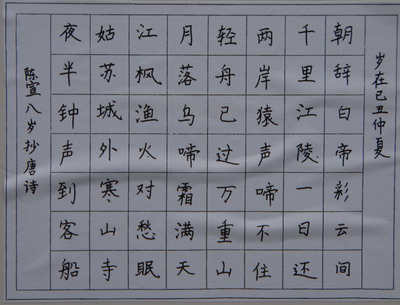 岁在己丑仲夏
朝辞白帝彩云间
千里江陵一日还
两岸猿声啼不住
轻舟已过万重山
月落乌啼霜满天
江枫渔火对愁眠
姑苏城外寒山寺
夜半钟声到客船
陈宣八岁抄唐诗